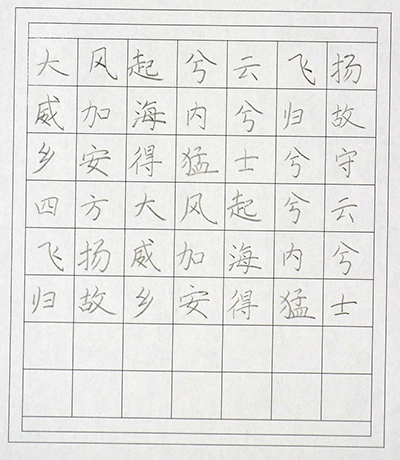 大风起兮云飞扬
威加海内兮归故
乡安得猛士兮守
四方大风起兮云
飞扬威加海内兮
归故乡安得猛士